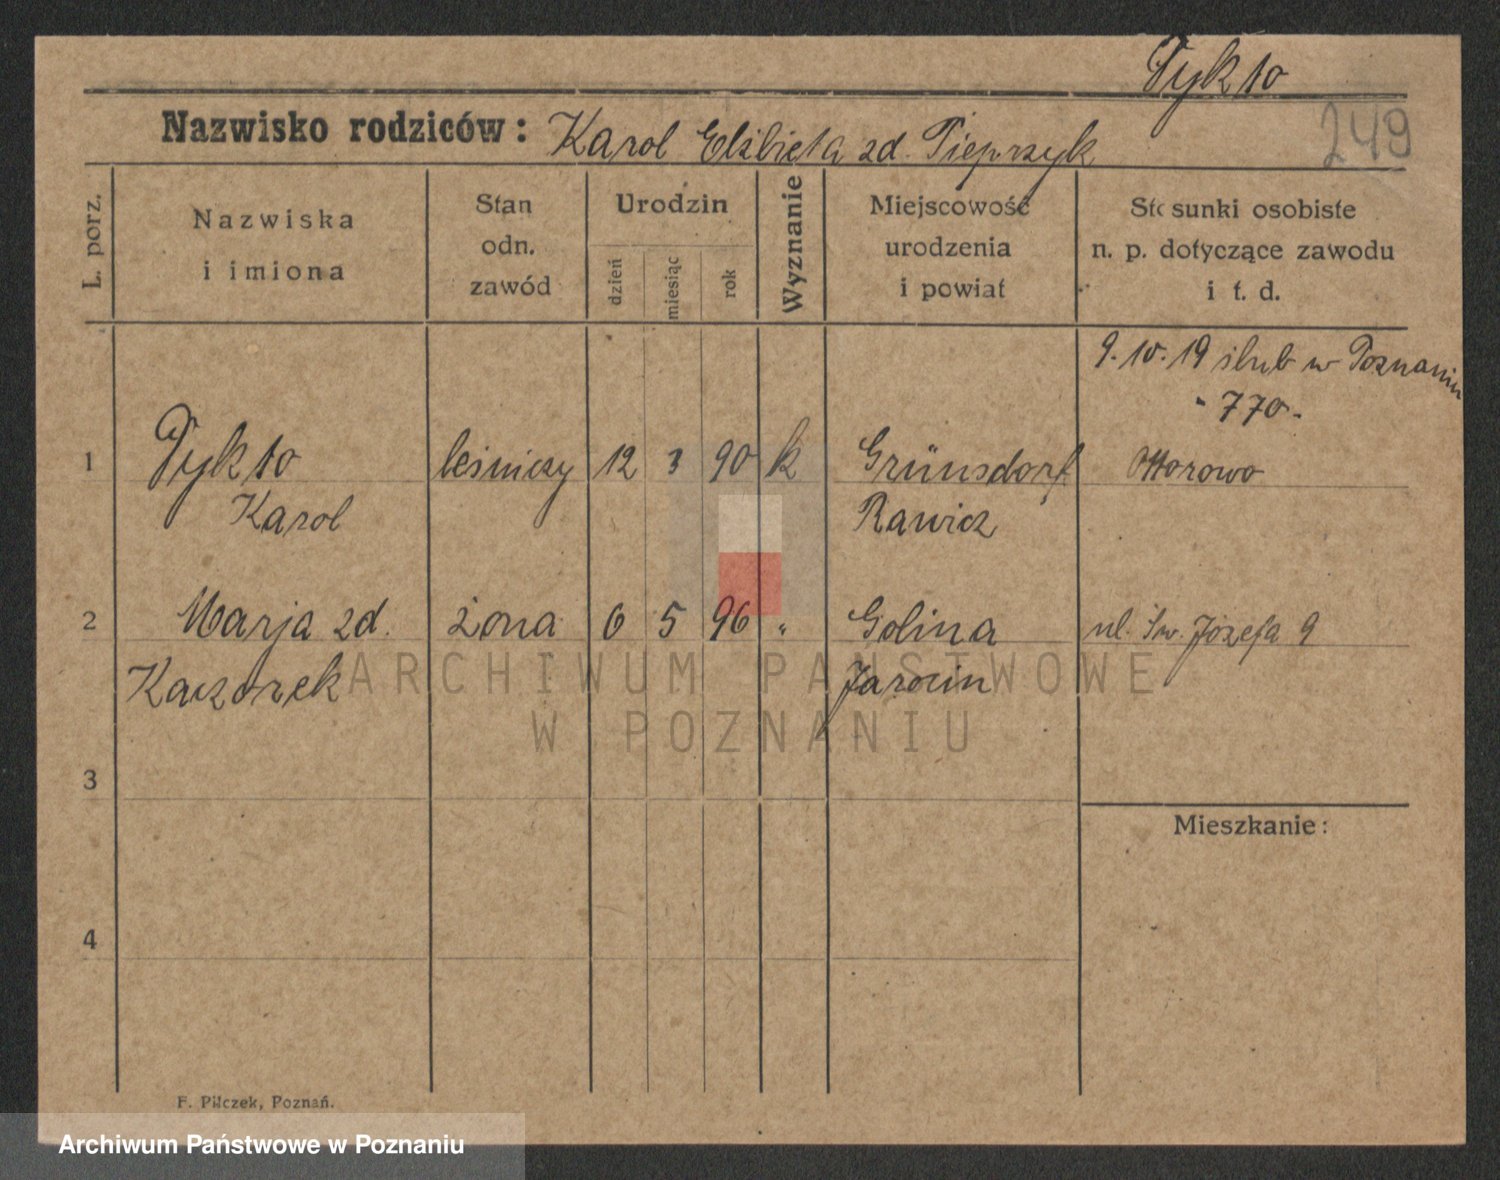 Pykto
249
Nazwisko rodziców: Karol Elżbieta zd. Pieprzyk
L. porz.
Nazwiska
i imiona
Stan
odn.
zawód
Urodzin
dzień
miesiąc
rok
Wyznanie
Miejscowość
urodzenia
i powiat
Stosunki osobiste
n. p. dotyczące zawodu
i t. d.
9.10.19 ślub w Poznaniu
- 770.
1 Pykto leśniczy 12 3 90 k Grünsdorf Ottorowo
Karol Rawicz
2 Marja zd. żona 6 5 96 " Golina ul. Św. Józefa 9
Kaczorek Jarocin
ARCHIWUM PAŃSTWOWE
W POZNANIU
3
Mieszkanie:
4
F. Pilczek, Poznań.
Archiwum Państwowe w Poznaniu